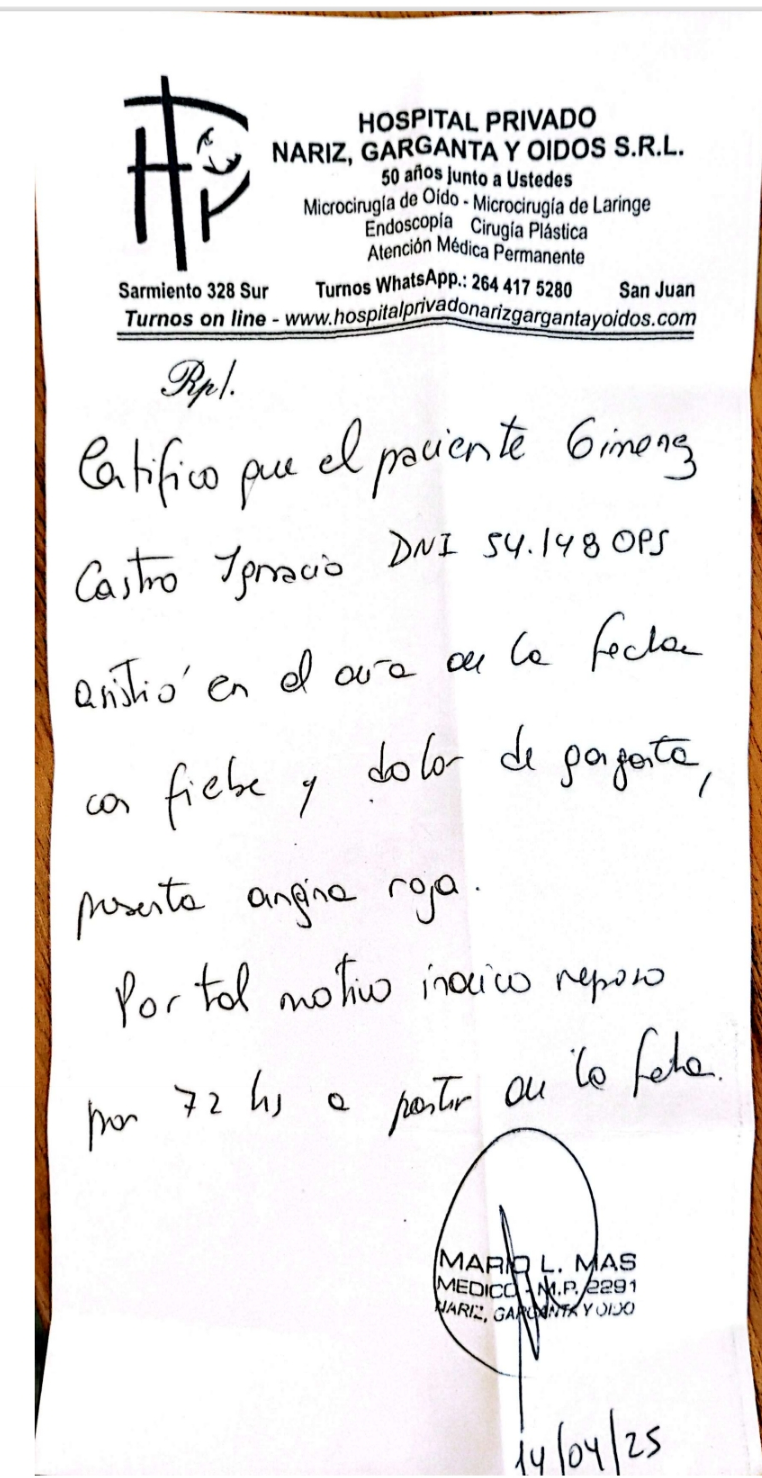 HOSPITAL PRIVADO
NARIZ, GARGANTA Y OIDOS S.R.L.
50 años junto a Ustedes
Microcirugía de Oído - Microcirugía de Laringe
Endoscopía Cirugía Plástica
Atención Médica Permanente
Sarmiento 328 Sur Turnos WhatsApp.: 264 417 5280 San Juan
Turnos on line - www.hospitalprivadonarizgargantayoidos.com
Rp/.
Certifico que el paciente Gimenez
Castro Ignacio DNI 54.148 085
asistió en el día de la fecha
con fiebe y dolor de garganta,
presenta angina roja.
Por tal motivo indico reposo
por 72 hs a partir de la fecha.
MARIO L. MAS
MEDICO - M.P. 2291
NARIZ, GARGANTA Y OIDO
14/04/25